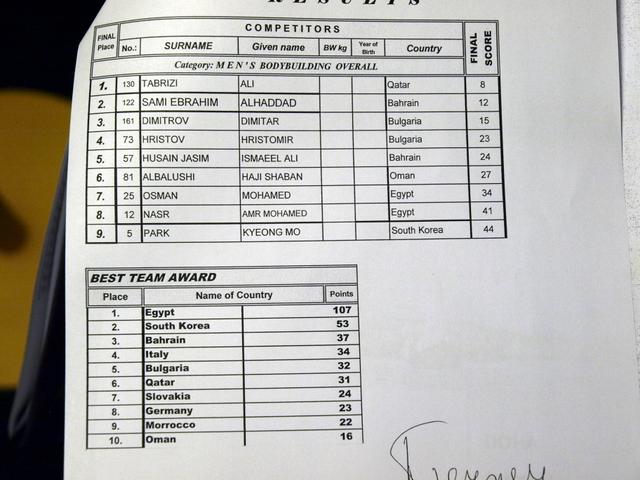 RESULTS
COMPETITORS
FINAL Place No.: SURNAME Given name BW kg Year of Birth Country FINAL SCORE
Category: MEN'S BODYBUILDING OVERALL
1. 130 TABRIZI ALI Qatar 8
2. 122 SAMI EBRAHIM ALHADDAD Bahrain 12
3. 161 DIMITROV DIMITAR Bulgaria 15
4. 73 HRISTOV HRISTOMIR Bulgaria 23
5. 57 HUSAIN JASIM ISMAEEL ALI Bahrain 24
6. 81 ALBALUSHI HAJI SHABAN Oman 27
7. 25 OSMAN MOHAMED Egypt 34
8. 12 NASR AMR MOHAMED Egypt 41
9. 5 PARK KYEONG MO South Korea 44
BEST TEAM AWARD
Place Name of Country Points
1. Egypt 107
2. South Korea 53
3. Bahrain 37
4. Italy 34
5. Bulgaria 32
6. Qatar 31
7. Slovakia 24
8. Germany 23
9. Morrocco 22
10. Oman 16